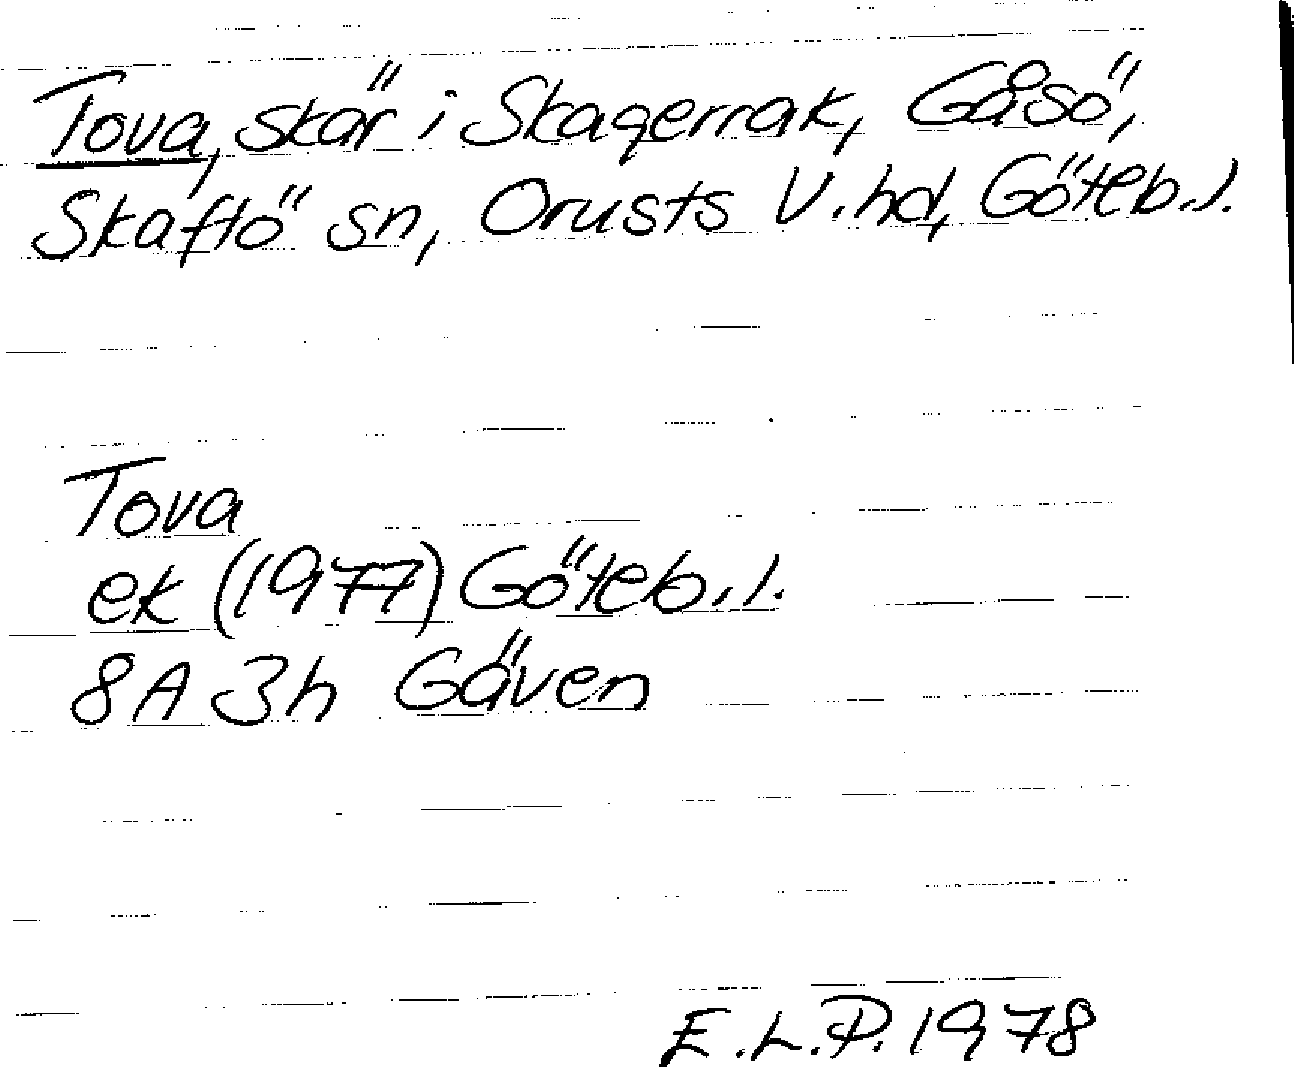 Tova, skär i Skagerrak, Gåsö,
Skaftö sn, Orusts V. hd, Göteb. l.
Tova
ek (1977) Göteb. l.
8A 3h Gäven
E.L.P. 1978